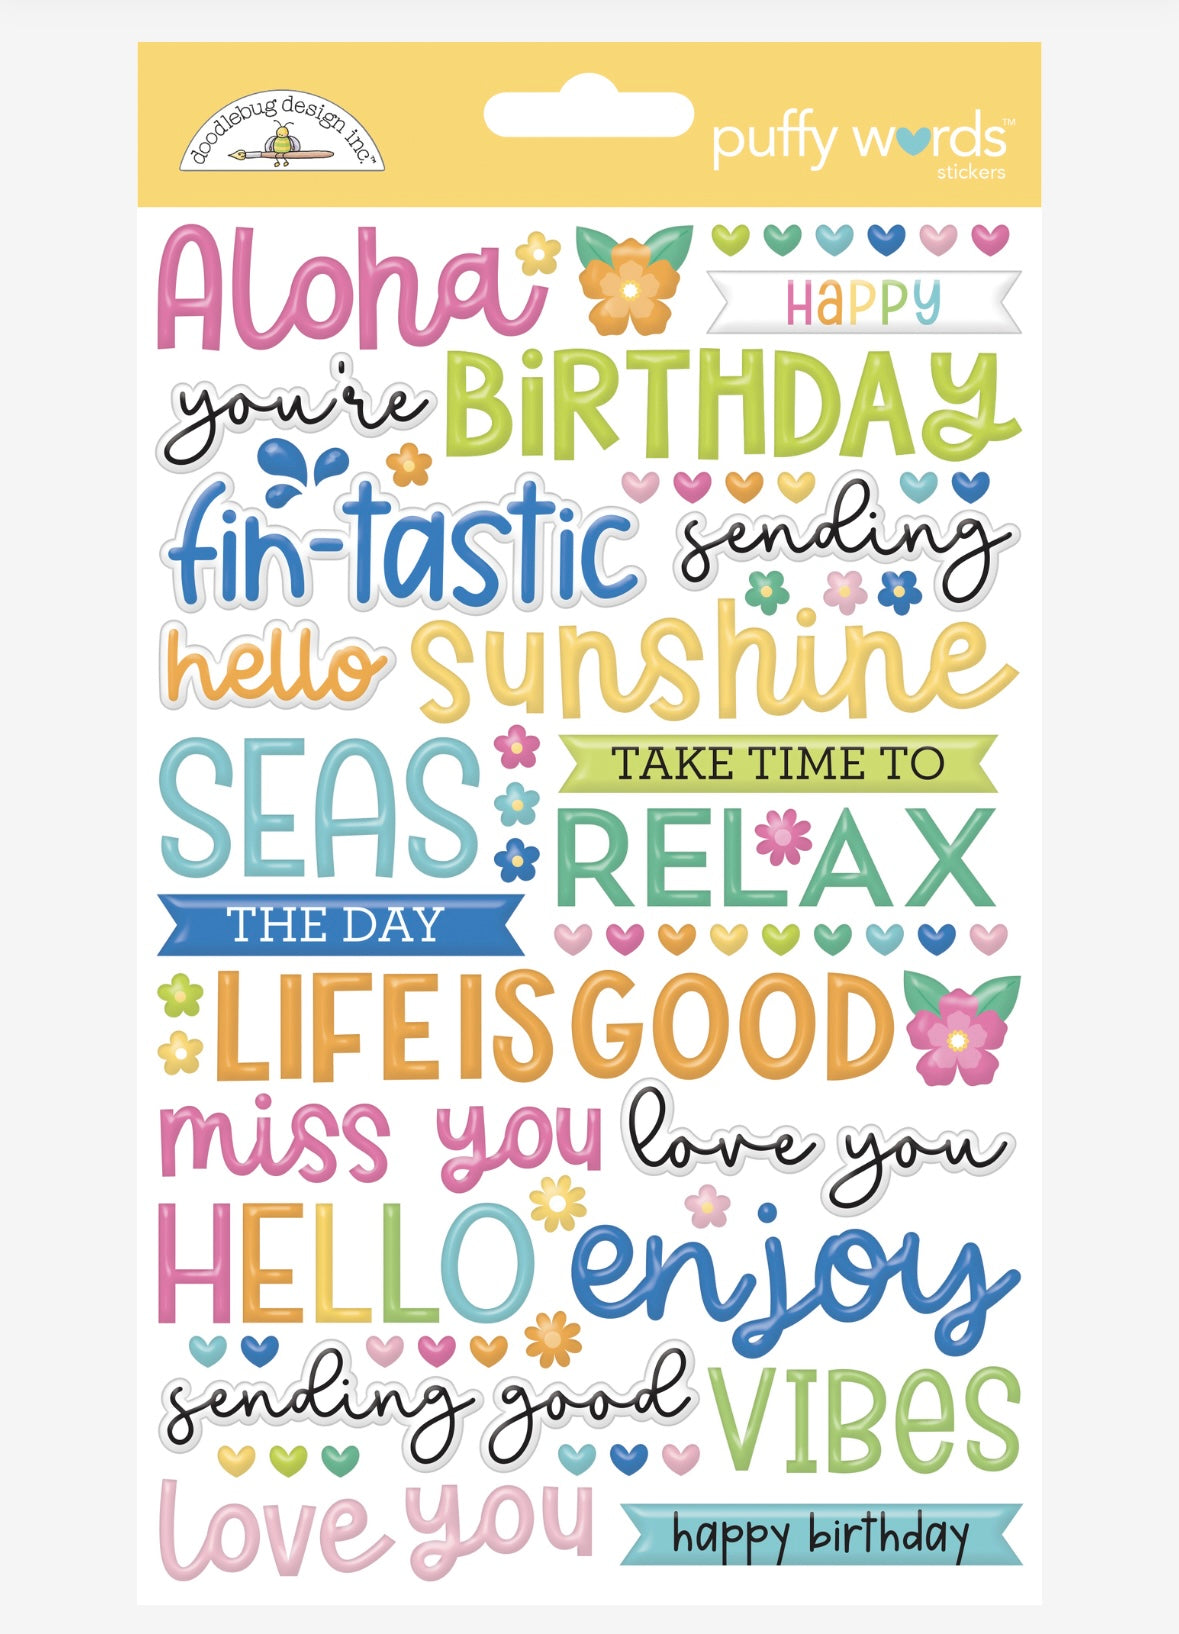 doodlebug design inc.™
puffy words™
stickers
Aloha
HAPPY
you're
BiRTHDAY
fin-tastic
sending
hello
sunshine
SEAS
TAKE TIME TO
RELAX
THE DAY
LIFE IS GOOD
miss you
love you
HELLO
enjoy
sending good
VIBES
love you
happy birthday